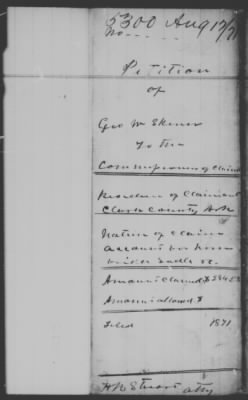 5300 Aug 12/71
No
Petition
of
Geo W Skinner
To the
Commissioners of Claims
Residence of Claimant
Clark County Ark
Nature of Claim
account for horse
bridle saddle &c.
Amount Claimed $
Amount allowed $
Filed 1871
Stuart atty